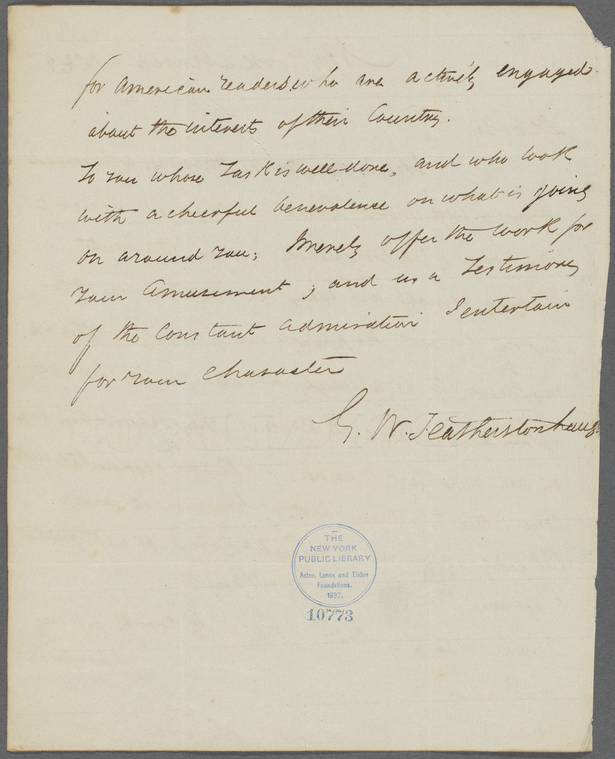 for American readers who are actively engaged
about the interests of their Country.
To you whose Task is well done, and who look
with a cheerful benevolence on what is going
on around you; I merely offer the work for
your Amusement; and as a Testimony
of the Constant admiration I entertain
for your Character
G. W. Featherstonhaugh
THE
NEW YORK
PUBLIC LIBRARY
Astor, Lenox and Tilden
Foundations.
1897.
10773